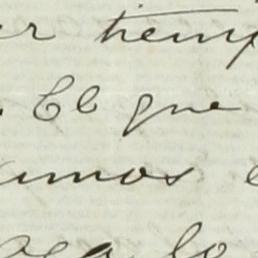 er tiemp
. El que
amos
lo